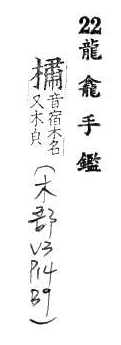 22龍龕手鑑
橚音宿木名
又木皃
(木部 V3 P14 B9)